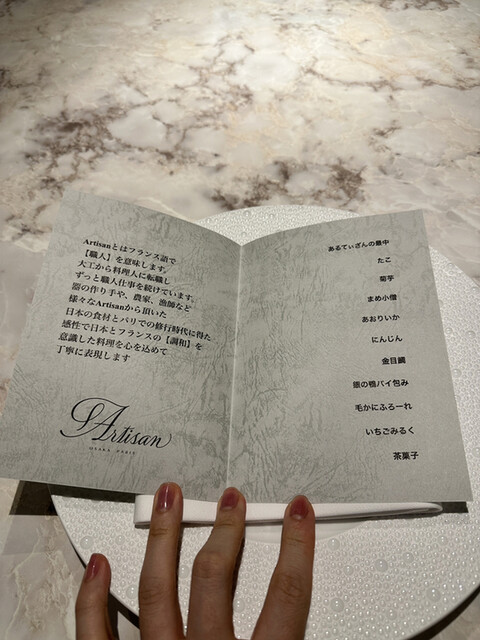 Artisanとはフランス語で
【職人】を意味します。
大工から料理人に転職し
ずっと職人仕事を続けています。
器の作り手や、農家、漁師など
様々なArtisanから頂いた
日本の食材とパリでの修行時代に得た
感性で日本とフランスの【調和】を
意識した料理を心を込めて
丁寧に表現します
Artisan
OSAKA PARIS
あるてぃざんの最中
たこ
菊芋
まめ小僧
あおりいか
にんじん
金目鯛
銀の鴨パイ包み
毛かにふろーれ
いちごみるく
茶菓子